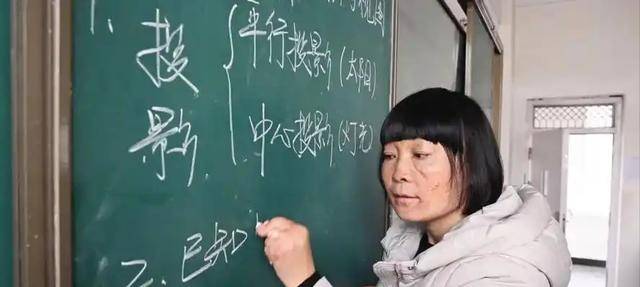 1、投影 {
视图
平行投影(太阳)
中心投影(灯光)
2、已知